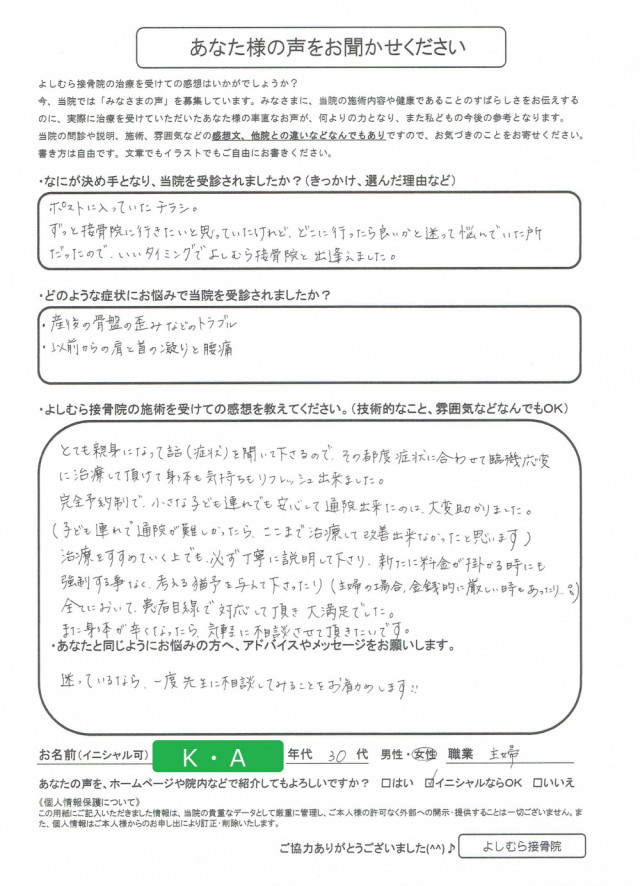 あなた様の声をお聞かせください
よしむら接骨院の治療を受けての感想はいかがでしょうか？
今、当院では「みなさまの声」を募集しています。みなさまに、当院の施術内容や健康であることのすばらしさをお伝えする
のに、実際に治療を受けていただいたあなた様の率直なお声が、何よりの力となり、また私どもの今後の参考となります。
当院の問診や説明、施術、雰囲気などの感想文、他院との違いなどなんでもありですので、お気づきのことをお寄せください。
書き方は自由です。文章でもイラストでもご自由にお書きください。
・なにが決め手となり、当院を受診されましたか？（きっかけ、選んだ理由など）
ポストに入っていたチラシ。
ずっと接骨院に行きたいと思っていたけれど、どこに行ったら良いかと迷って悩んでいた所
だったので、いいタイミングでよしむら接骨院と出逢えました。
・どのような症状にお悩みで当院を受診されましたか？
・産後の骨盤の歪みなどのトラブル
・以前からの肩と首の凝りと腰痛
・よしむら接骨院の施術を受けての感想を教えてください。（技術的なこと、雰囲気などなんでもOK）
とても親身になって話（症状）を聞いて下さるので、その都度症状に合わせて臨機応変
に治療して頂けて身体も気持ちもリフレッシュ出来ました。
完全予約制で、小さな子ども連れでも安心して通院出来たのは、大変助かりました。
（子ども連れで通院が難しかったら、ここまで治療して改善出来なかったと思います）
治療をすすめていく上でも、必ず丁寧に説明して下さり、新たに料金が掛かる時にも
強制する事なく、考える猶予を与えて下さったり（主婦の場合、金銭的に厳しい時もあったり…）
全てにおいて、患者目線で対応して頂き大満足でした。
また身体が辛くなったら、気軽に相談させて頂きたいです。
・あなたと同じようにお悩みの方へ、アドバイスやメッセージをお願いします。
迷っているなら、一度先生に相談してみることをお勧めします!!
お名前（イニシャル可） K・A 年代 30 代 男性・女性 職業 主婦
あなたの声を、ホームページや院内などで紹介してもよろしいですか？ □はい ☑イニシャルならOK □いいえ
《個人情報保護について》
この用紙にご記入いただきました情報は、当院の貴重なデータとして厳重に管理し、ご本人様の許可なく外部への開示・提供することは一切ございません。ま
た、個人情報はご本人様からのお申し出により訂正・削除いたします。
ご協力ありがとうございました(^^)♪ よしむら接骨院